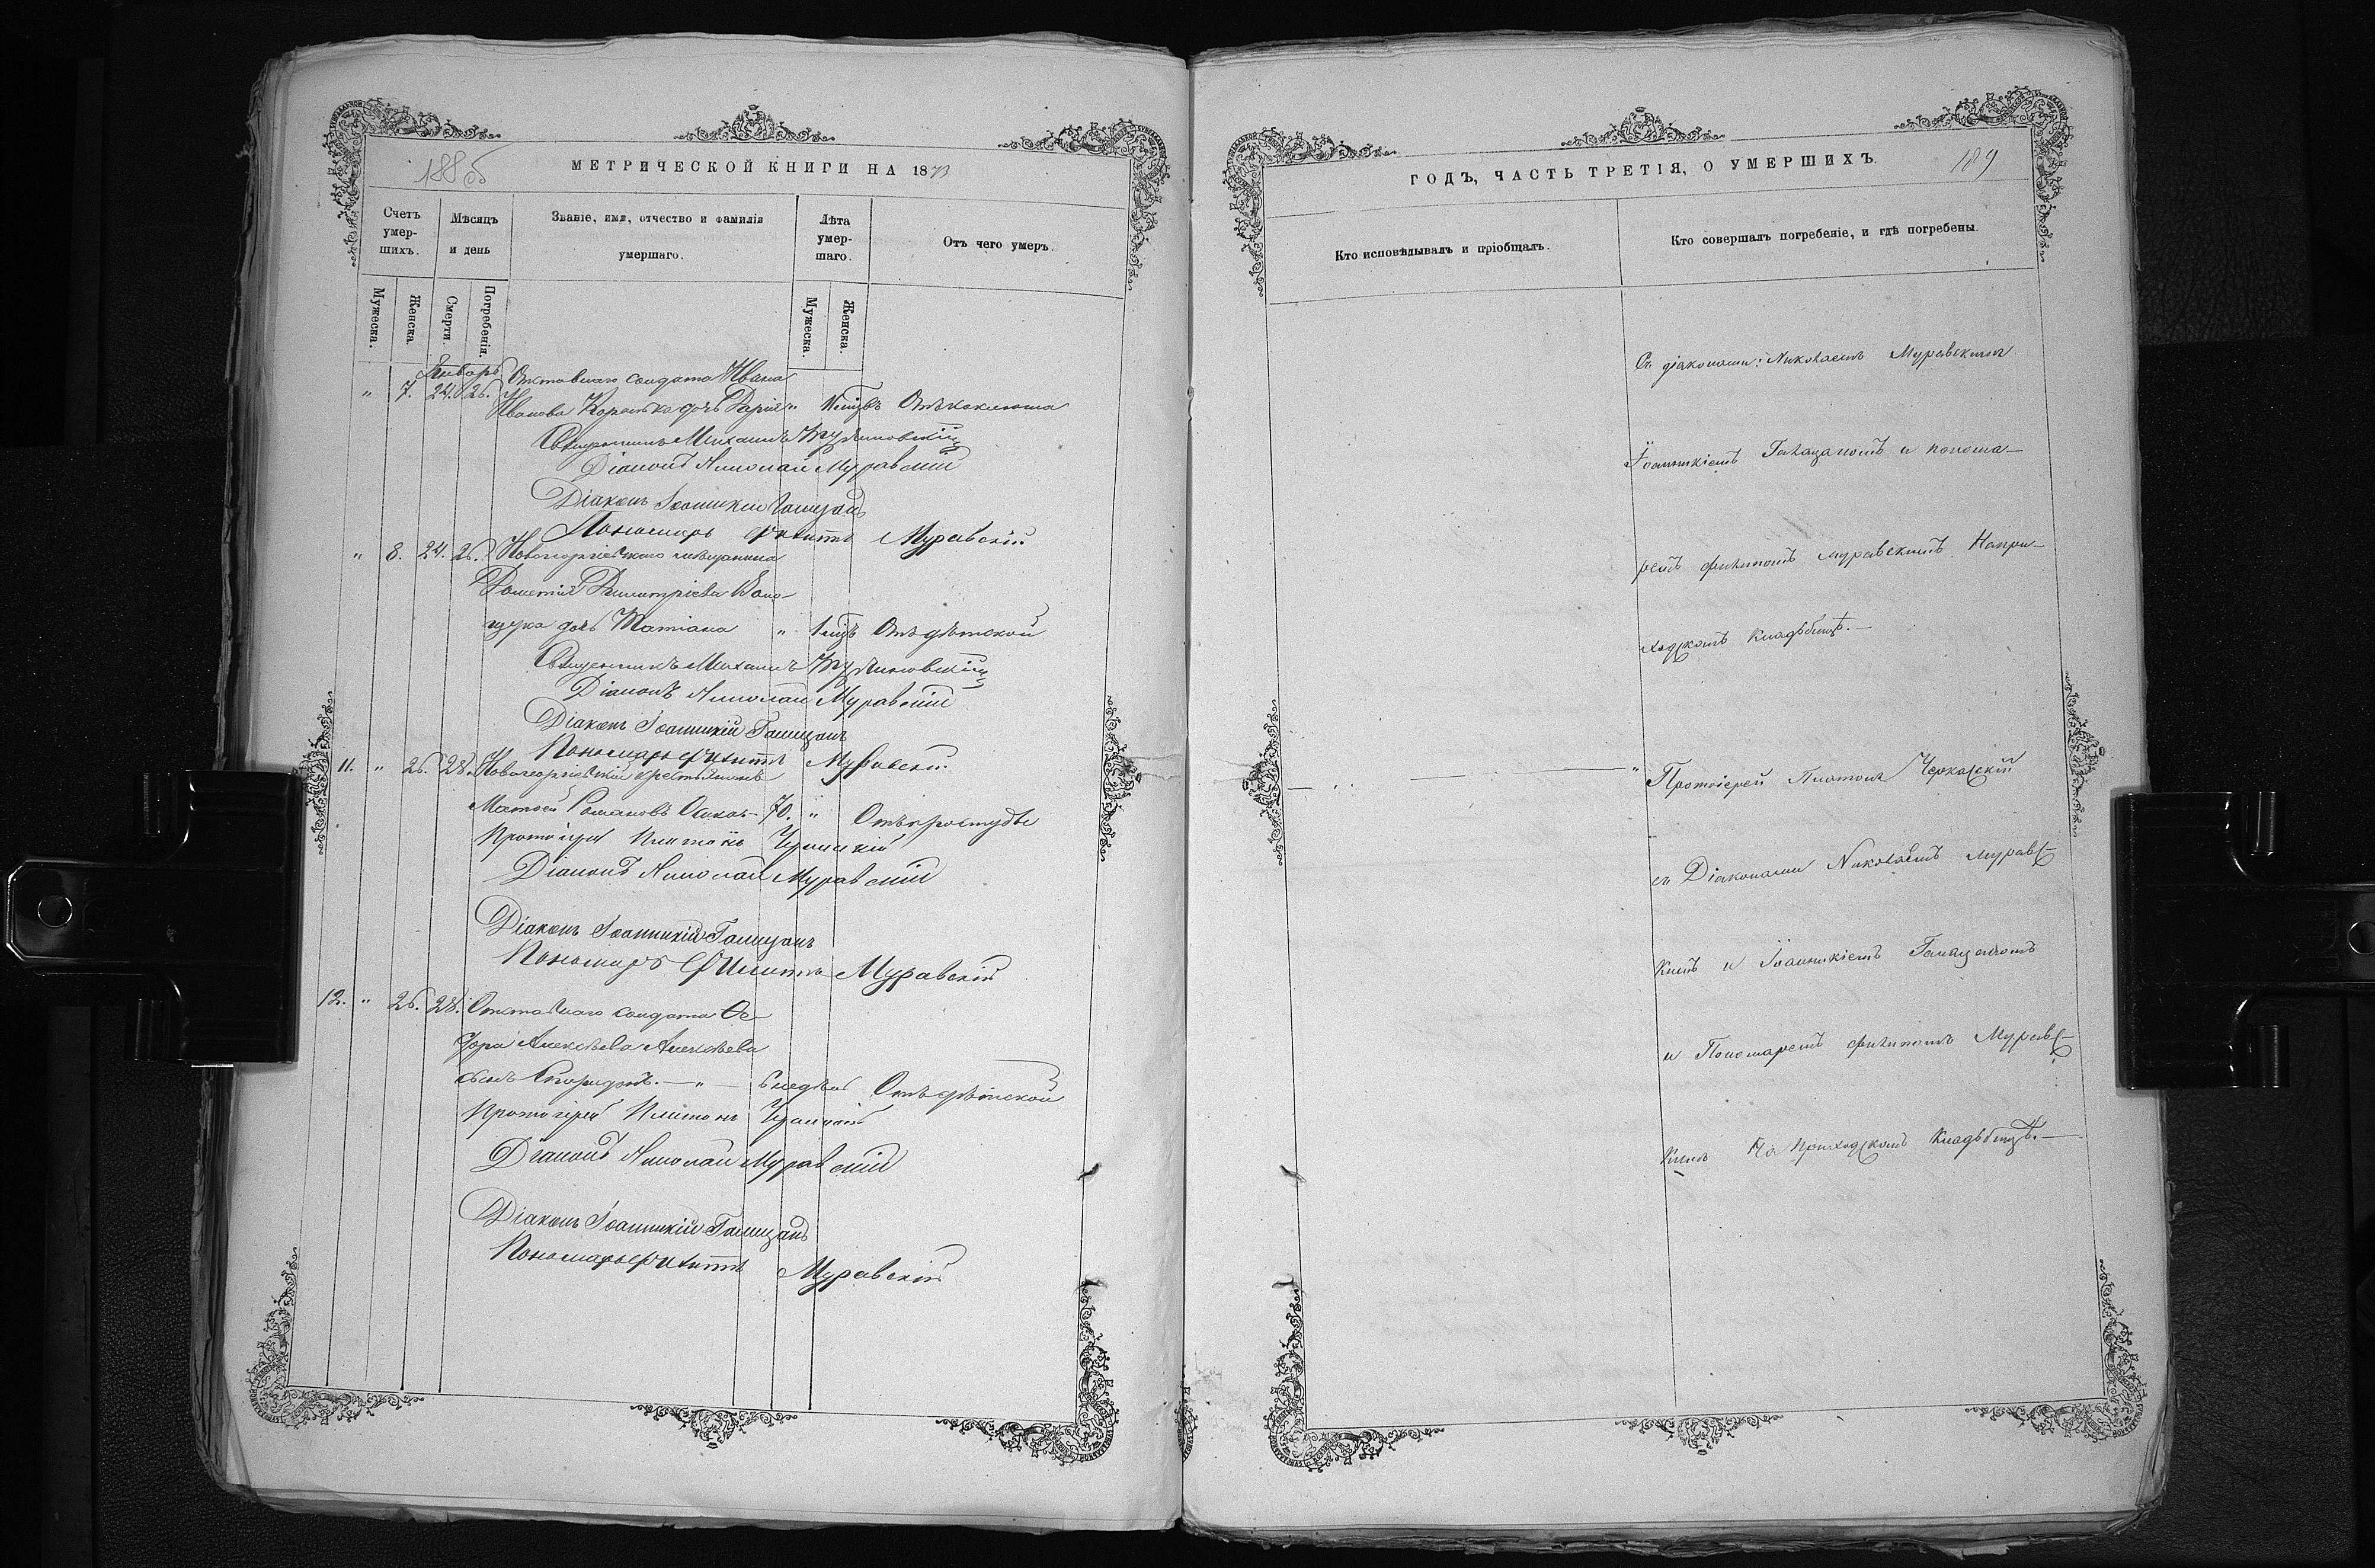 188 об
МЕТРИЧЕСКОЙ КНИГИ НА 1873
Счетъ умер-шихъ.
Мѣсяцъ и день
Званіе, имя, отчество и фамилія умершаго.
Лѣта умер-шаго.
Отъ чего умеръ.
Мужеска.
Женска.
Смерти.
Погребенія.
Мужеска.
Женска.
Январь
" 7. 24. 26. Отставнаго солдата Ивана
Иванова дочь Дарія " Отъ коклюша
Священникъ Михаилъ
Діаконъ Николай Муравскій
Діаконъ Іоанникій Галицанъ
Пономарь Филиппъ Муравскій
" 8. 24. 26. Новогеоргіевскаго мѣщанина
Дометія Димитріева
дочь Татіана " Отъ дѣтской
Священникъ Михаилъ
Діаконъ Николай Муравскій
Діаконъ Іоанникій Галицанъ
Пономарь Филиппъ Муравскій
11. " 26. 28. Новогеоргіевскій крестьянинъ
Матвей Романовъ 70. " Отъ простуды
Протоіерей Платонъ Черкаскій
Діаконъ Николай Муравскій
Діаконъ Іоанникій Галицанъ
Пономарь Филиппъ Муравскій
12. " 26. 28. Отставнаго солдата Ѳе-
дора Алексѣева Алексѣева
сынъ Спиридонъ. — " — Отъ дѣтской
Протоіерей Платонъ Черкаскій
Діаконъ Николай Муравскій
Діаконъ Іоанникій Галицанъ
Пономарь Филиппъ Муравскій
ГОДЪ, ЧАСТЬ ТРЕТІЯ, О УМЕРШИХЪ.
189
Кто исповѣдывалъ и пріобщалъ.
Кто совершалъ погребеніе, и гдѣ погребены.
Съ діаконами: Николаемъ Муравскимъ
Іоанникіемъ Галицаномъ и понома-
ремъ Филипомъ Муравскимъ На при-
ходскомъ кладбищѣ. —
" Протоіерей Платонъ Черкаскій
съ Діаконами Николаемъ Муравс-
кимъ и Іоанникіемъ Галицаномъ
и Пономаремъ Филипомъ Муравс-
кимъ На приходскомъ кладбищѣ. —